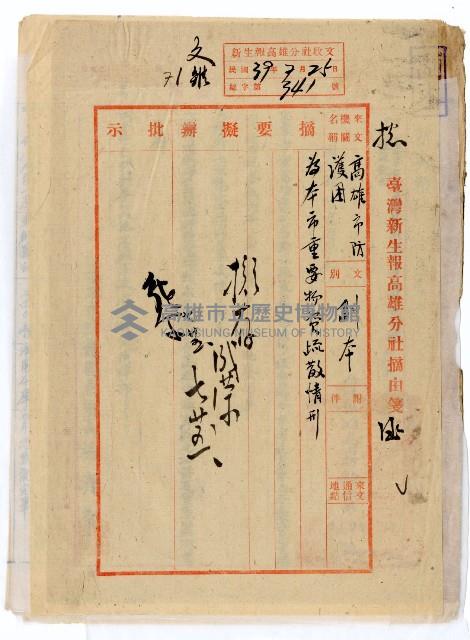 臺灣新生報高雄分社摘由箋
新生報高雄分社收文
民國39年7月25日
總字第341號
文雜
71
來文機關名稱
高雄市防護團
文別
副本
附件
來文通信地點
摘要
為本市重要物資疏散情形
擬辦
擬存
批示
高雄市立歷史博物館
KAOHSIUNG MUSEUM OF HISTORY